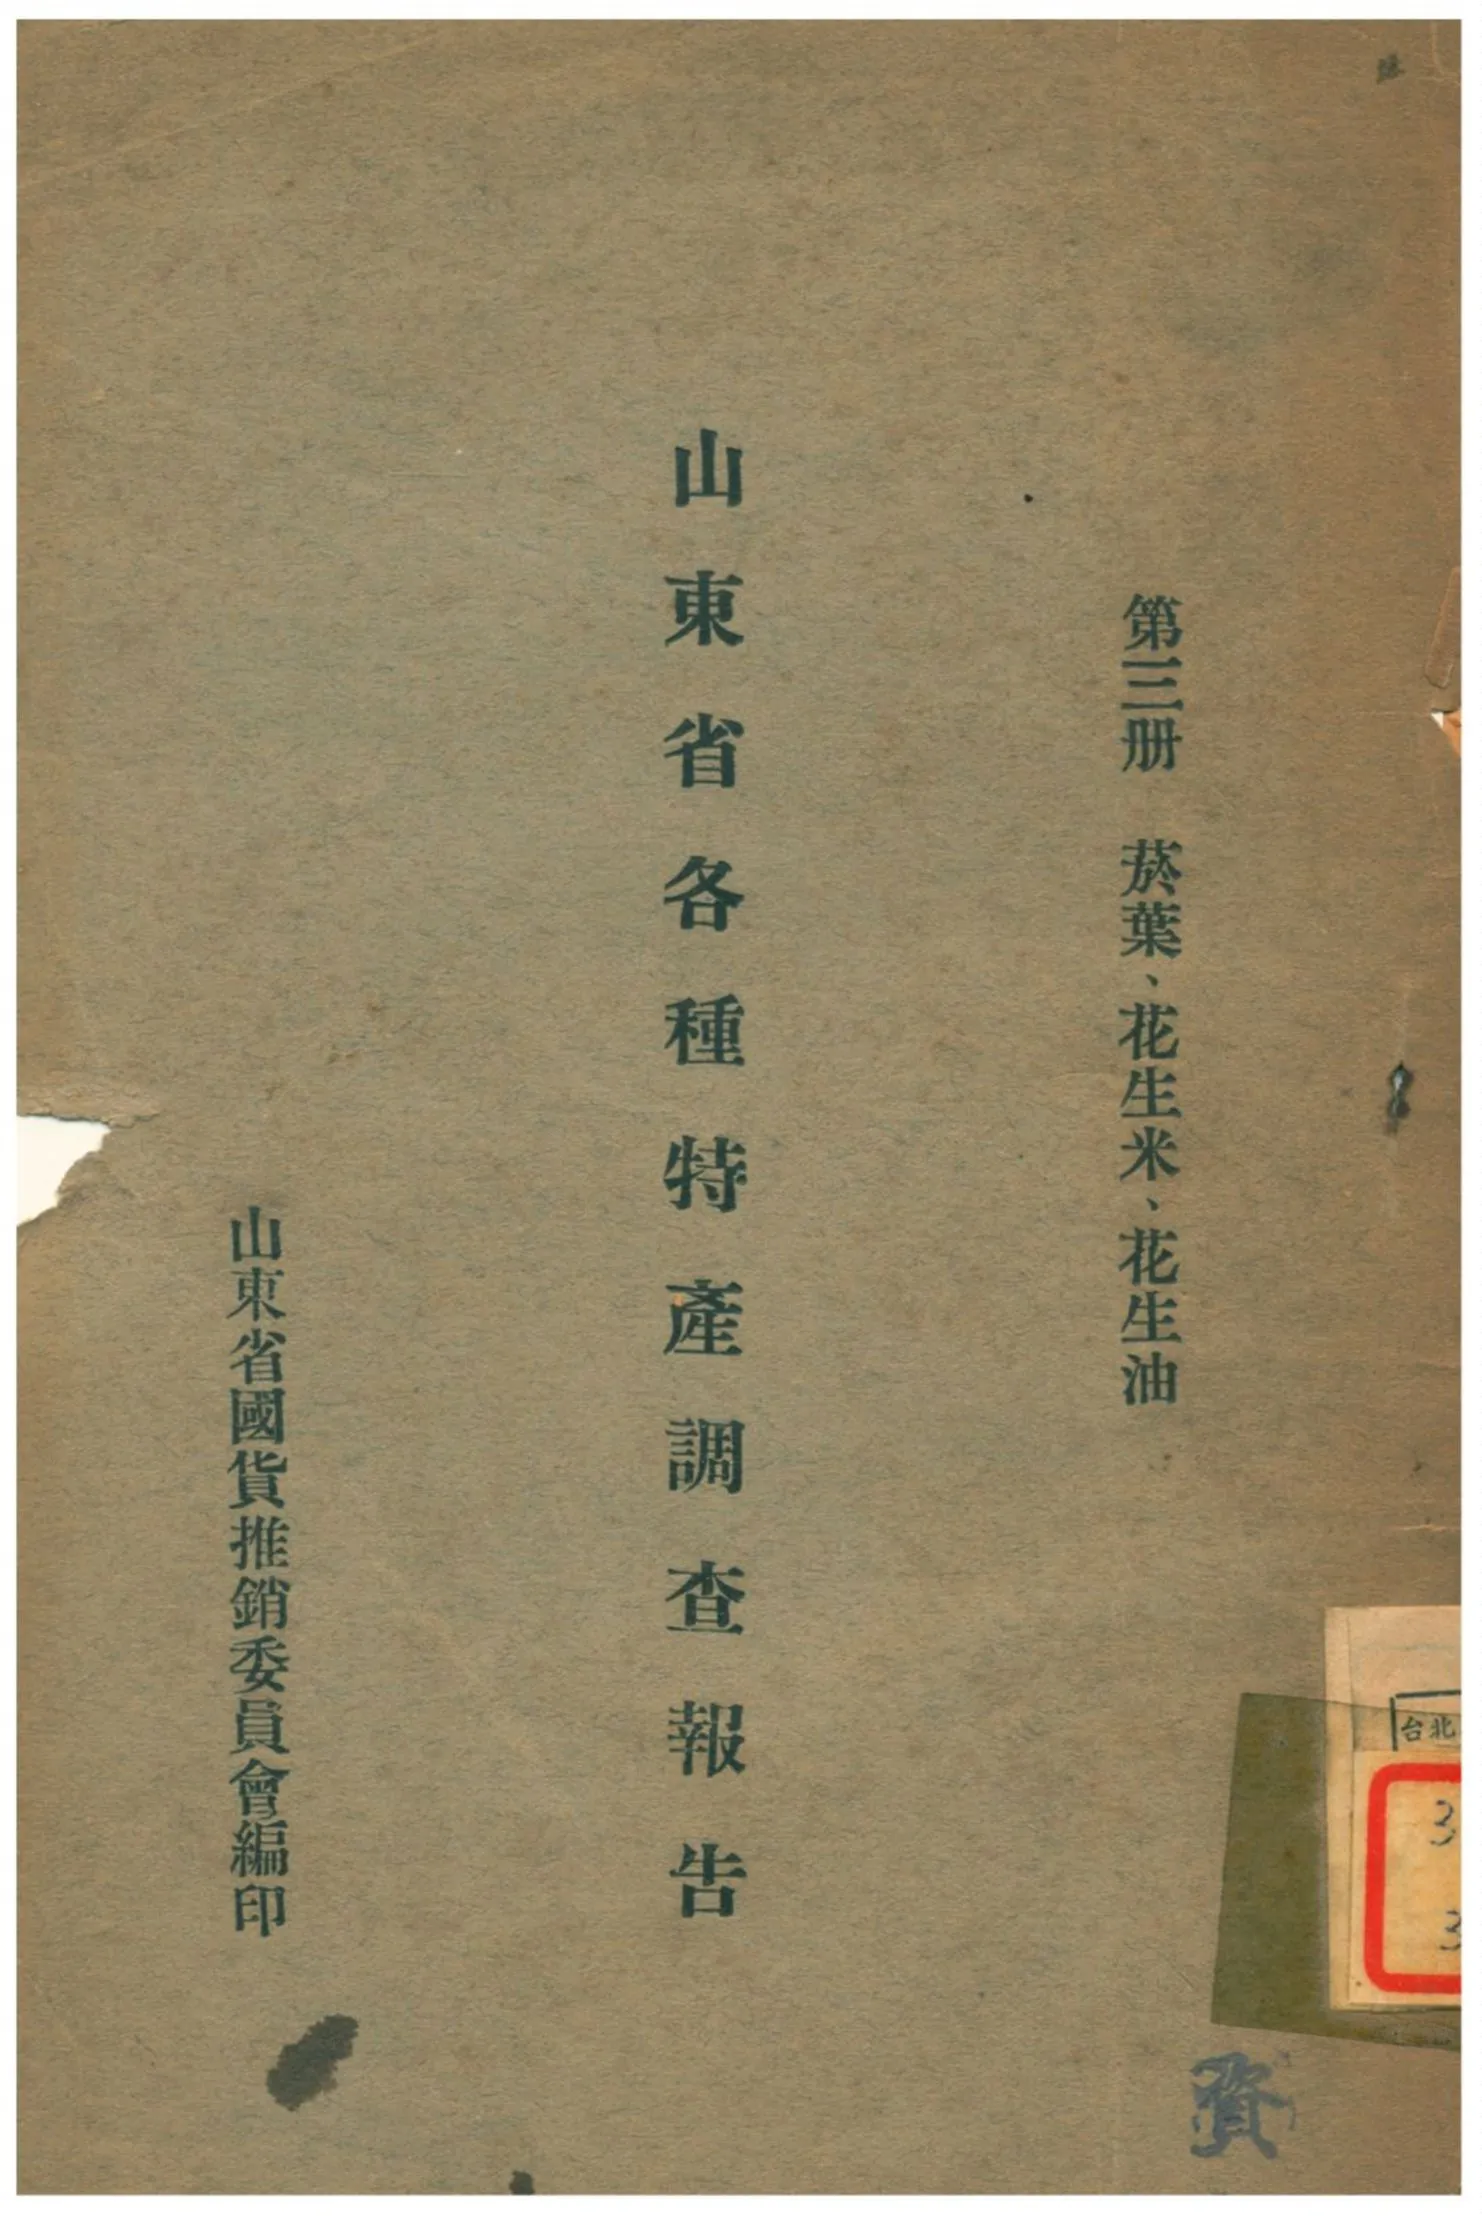 第三册　菸葉、花生米、花生油
山東省各種特產調查報告
山東省國貨推銷委員會編印
台北
3
3
資